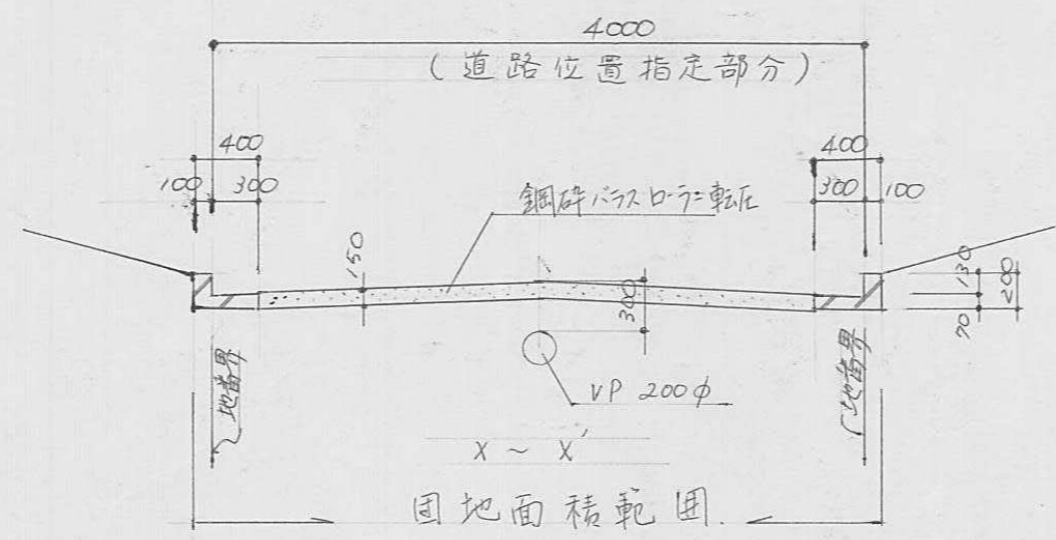 4000
(道路位置指定部分)
400
400
100 300
300 100
鋼砕バラスローラー転圧
150
300
130
200
70
地番界
地番界
VP 200φ
X ~ X'
団地面積範囲